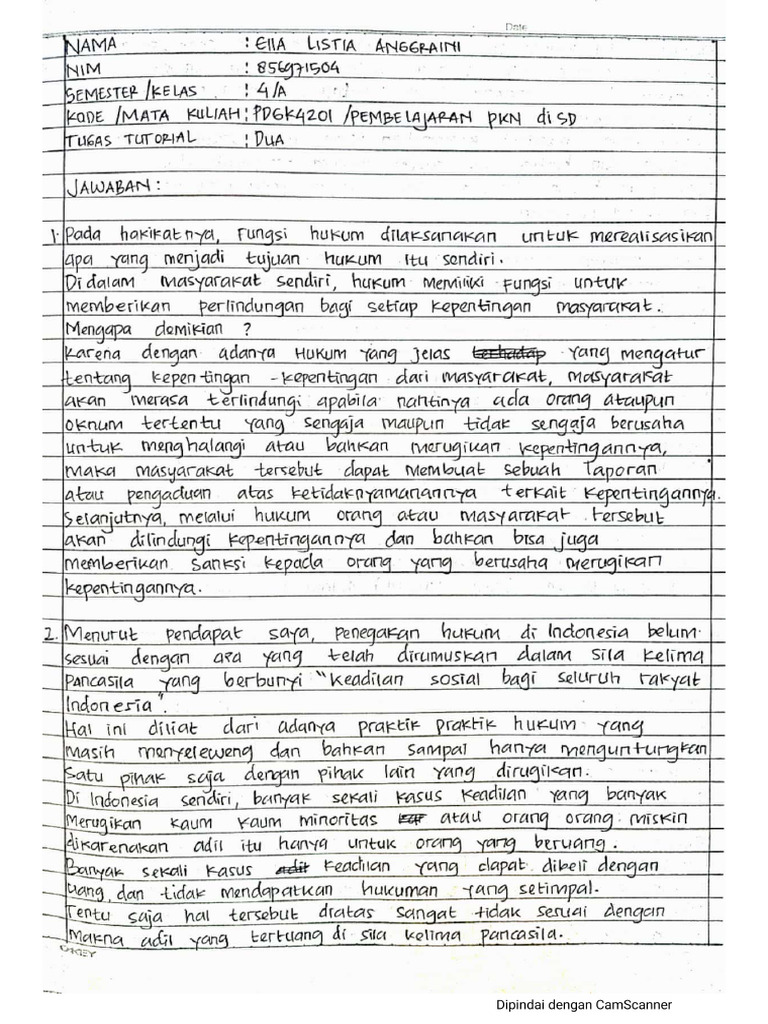 Date
NAMA : Ella LISTIA ANGGRAINI
NIM : 856971504
SEMESTER/KELAS : 4/A
KODE /MATA KULIAH : PDGK4201 /PEMBELAJARAN PKN di SD
TUGAS TUTORIAL : DUA
JAWABAN :
1. Pada hakikatnya, fungsi hukum dilaksanakan untuk merealisasikan
apa yang menjadi tujuan hukum itu sendiri.
Di dalam masyarakat sendiri, hukum memiliki fungsi untuk
memberikan perlindungan bagi setiap kepentingan masyarakat.
Mengapa demikian ?
Karena dengan adanya Hukum yang jelas terhadap yang mengatur
tentang kepentingan -kepentingan dari masyarakat, masyarakat
akan merasa terlindungi apabila nantinya ada orang ataupun
oknum tertentu yang sengaja maupun tidak sengaja berusaha
untuk menghalangi atau bahkan merugikan kepentingannya,
maka masyarakat tersebut dapat membuat sebuah laporan
atau pengaduan atas ketidaknyamanannya terkait kepentingannya.
Selanjutnya, melalui hukum orang atau masyarakat tersebut
akan dilindungi kepentingannya dan bahkan bisa juga
memberikan sanksi kepada orang yang berusaha merugikan
kepentingannya.
2. Menurut pendapat saya, penegakan hukum di Indonesia belum
sesuai dengan apa yang telah dirumuskan dalam sila kelima
Pancasila yang berbunyi "Keadilan sosial bagi seluruh rakyat
Indonesia".
Hal ini diliat dari adanya praktik praktik hukum yang
masih menyeleweng dan bahkan sampai hanya menguntungkan
satu pihak saja dengan pihak lain yang dirugikan.
Di Indonesia sendiri, banyak sekali kasus keadilan yang banyak
merugikan kaum kaum minoritas atau orang orang miskin
dikarenakan adil itu hanya untuk orang yang beruang.
Banyak sekali kasus adil keadilan yang dapat dibeli dengan
uang, dan tidak mendapatkan hukuman yang setimpal.
Tentu saja hal tersebut diatas sangat tidak sesuai dengan
makna adil yang tertuang di sila kelima pancasila.
Dipindai dengan CamScanner